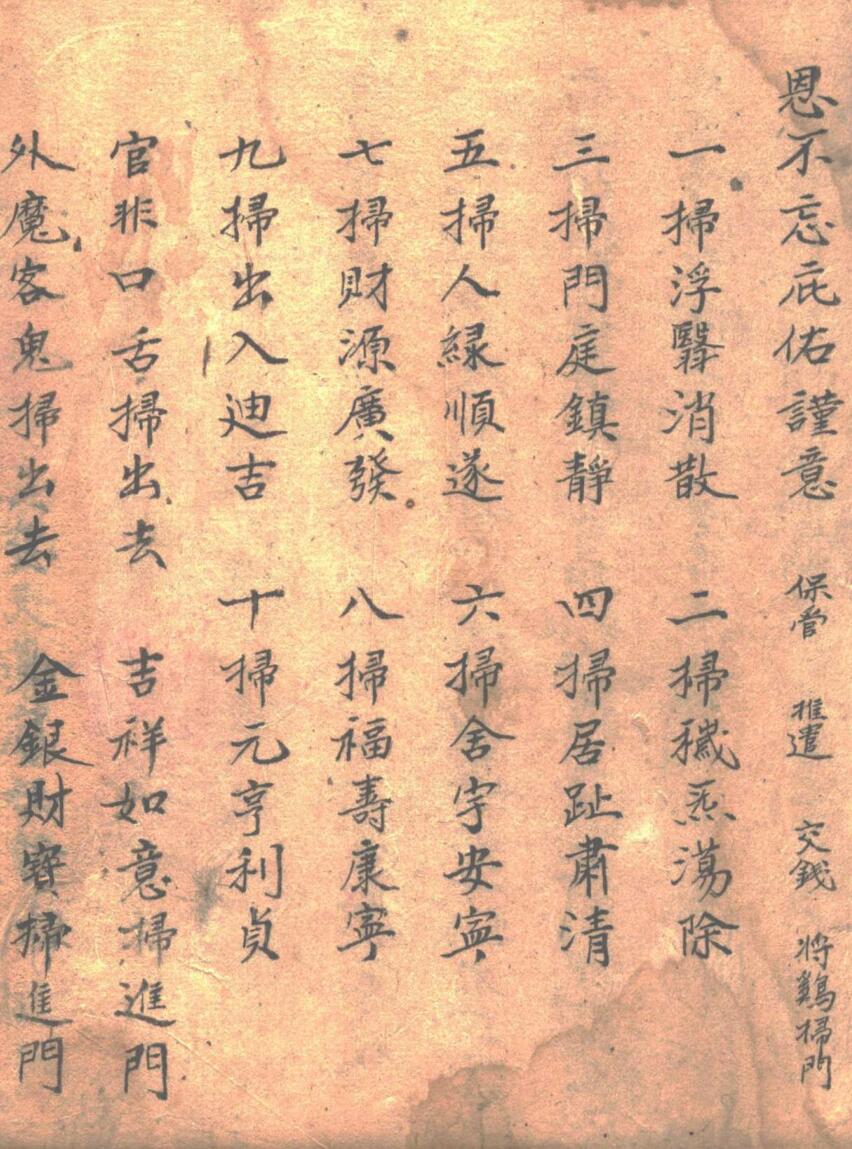 恩不忘庇佑謹意 保管 推遣 交錢 将鷄掃門
一掃浮翳消散 二掃穢炁蕩除
三掃門庭鎮靜 四掃居趾肅清
五掃人緑順遂 六掃舍宇安寧
七掃財源廣發 八掃福壽康寧
九掃出入迪吉 十掃元亨利貞
官非口舌掃出去 吉祥如意掃進門
外魔客鬼掃出去 金銀財寳掃進門